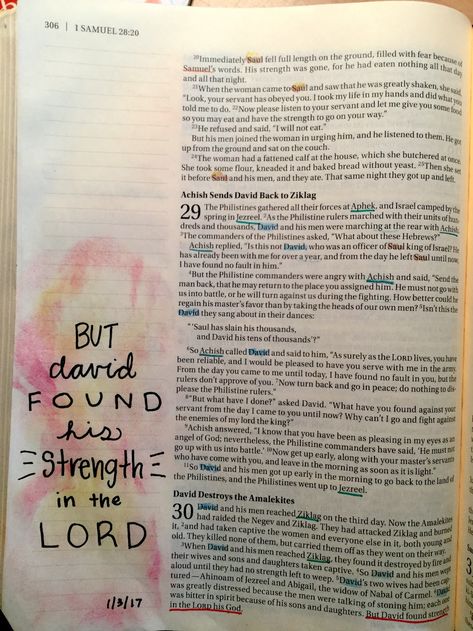 306 | 1 SAMUEL 28:20
20Immediately Saul fell full length on the ground, filled with fear because of
Samuel's words. His strength was gone, for he had eaten nothing all that day
and all that night.
21When the woman came to Saul and saw that he was greatly shaken, she said,
"Look, your servant has obeyed you. I took my life in my hands and did what you
told me to do. 22Now please listen to your servant and let me give you some food
so you may eat and have the strength to go on your way."
23He refused and said, "I will not eat."
But his men joined the woman in urging him, and he listened to them. He got
up from the ground and sat on the couch.
24The woman had a fattened calf at the house, which she butchered at once.
She took some flour, kneaded it and baked bread without yeast. 25Then she set
it before Saul and his men, and they ate. That same night they got up and left.
Achish Sends David Back to Ziklag
29 The Philistines gathered all their forces at Aphek, and Israel camped by the
spring in Jezreel. 2As the Philistine rulers marched with their units of hun-
dreds and thousands, David and his men were marching at the rear with Achish.
3The commanders of the Philistines asked, "What about these Hebrews?"
Achish replied, "Is this not David, who was an officer of Saul king of Israel? He
has already been with me for over a year, and from the day he left Saul until now,
I have found no fault in him."
4But the Philistine commanders were angry with Achish and said, "Send the
man back, that he may return to the place you assigned him. He must not go with
us into battle, or he will turn against us during the fighting. How better could he
regain his master's favor than by taking the heads of our own men? 5Isn't this the
David they sang about in their dances:
"'Saul has slain his thousands,
and David his tens of thousands'?"
6So Achish called David and said to him, "As surely as the LORD lives, you have
been reliable, and I would be pleased to have you serve with me in the army.
From the day you came to me until today, I have found no fault in you, but the
rulers don't approve of you. 7Now turn back and go in peace; do nothing to dis-
please the Philistine rulers."
8"But what have I done?" asked David. "What have you found against your
servant from the day I came to you until now? Why can't I go and fight against
the enemies of my lord the king?"
9Achish answered, "I know that you have been as pleasing in my eyes as an
angel of God; nevertheless, the Philistine commanders have said, 'He must not
go up with us into battle.' 10Now get up early, along with your master's servants
who have come with you, and leave in the morning as soon as it is light."
11So David and his men got up early in the morning to go back to the land of
the Philistines, and the Philistines went up to Jezreel.
David Destroys the Amalekites
30 David and his men reached Ziklag on the third day. Now the Amalekites
had raided the Negev and Ziklag. They had attacked Ziklag and burned
it, 2and had taken captive the women and everyone else in it, both young and
old. They killed none of them, but carried them off as they went on their way.
3When David and his men reached Ziklag, they found it destroyed by fire and
their wives and sons and daughters taken captive. 4So David and his men wept
aloud until they had no strength left to weep. 5David's two wives had been cap-
tured—Ahinoam of Jezreel and Abigail, the widow of Nabal of Carmel. 6David
was greatly distressed because the men were talking of stoning him; each one
was bitter in spirit because of his sons and daughters. But David found strength
in the LORD his God.
BUT
david
FOUND
his
Strength
in the
LORD
1/3/17